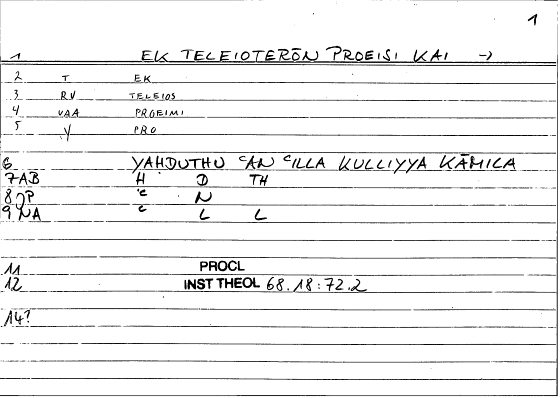 1
1 EK TELEIOTERŌN PROEISI KAI →
2 T EK
3 RV TELEIOS
4 VAA PROEIMI
5 Y PRO
6 YAHDUTHU ᶜAN ᶜILLA KULLIYYA KĀMILA
7AB H D TH
8 JP ᶜ N
9 NA ᶜ L L
11 PROCL
12 INST THEOL 68.18:72.2
14?